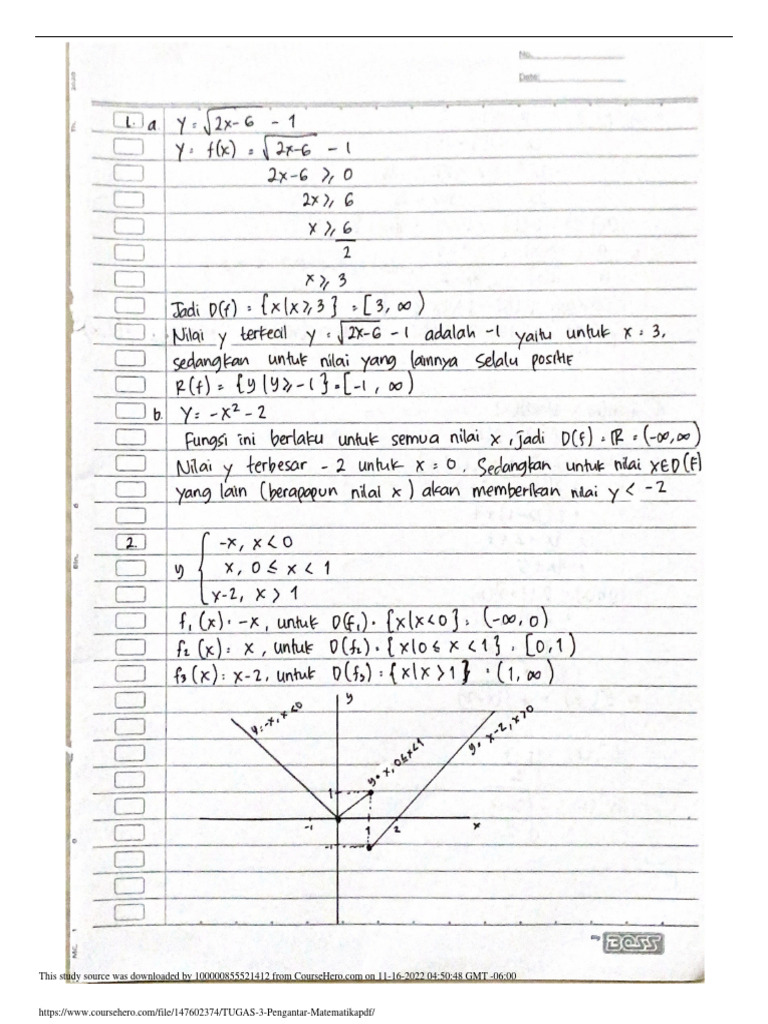 No.
Date:
1. a. y = √2x-6 - 1
y = f(x) = √2x-6 - 1
2x-6 ≥ 0
2x ≥ 6
x ≥ 6
2
x ≥ 3
Jadi D(f) = {x|x≥3} = [3, ∞)
Nilai y terkecil y = √2x-6 - 1 adalah -1 yaitu untuk x = 3,
sedangkan untuk nilai yang lainnya selalu positif
R(f) = {y|y≥-1} = [-1, ∞)
b. y = -x² - 2
Fungsi ini berlaku untuk semua nilai x, jadi D(f) = ℝ = (-∞,∞)
Nilai y terbesar -2 untuk x = 0. Sedangkan untuk nilai x∈D(f)
yang lain (berapapun nilai x) akan memberikan nilai y < -2
2. { -x, x<0
y { x, 0 ≤ x < 1
{ x-2, x > 1
f₁(x) = -x, untuk D(f₁) = {x|x<0} = (-∞, 0)
f₂(x) = x, untuk D(f₂) = {x|0 ≤ x < 1} = [0,1)
f₃(x) = x-2, untuk D(f₃) = {x|x>1} = (1, ∞)
y
y = -x, x<0
y = x, 0≤x<1
y = x-2, x>0
1
-1 1 2 x
-1
BOSS
This study source was downloaded by 100000855521412 from CourseHero.com on 11-16-2022 04:50:48 GMT -06:00
https://www.coursehero.com/file/147602374/TUGAS-3-Pengantar-Matematikapdf/